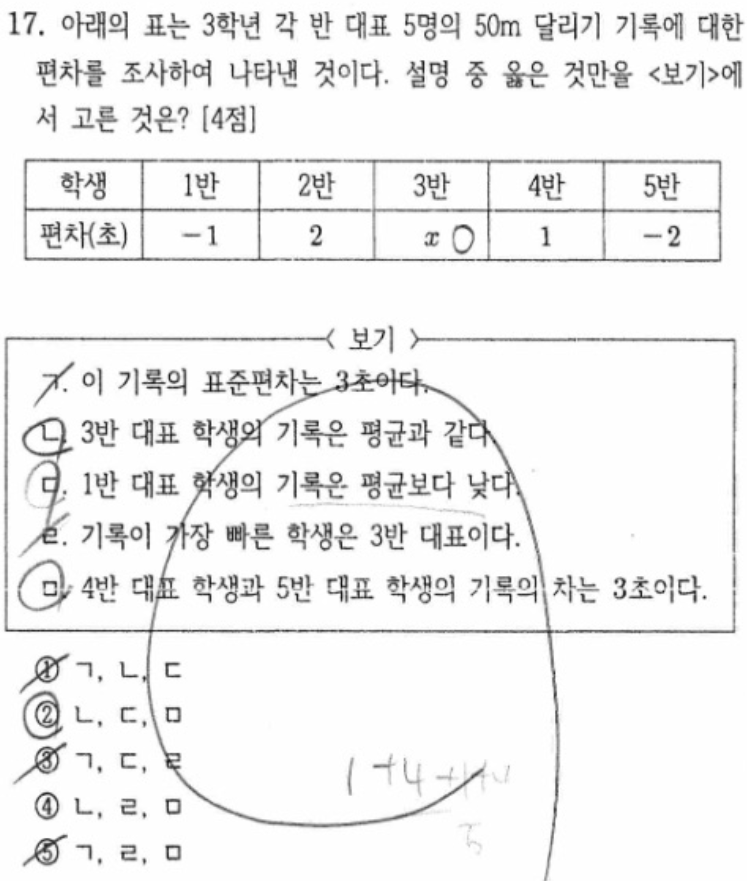 17. 아래의 표는 3학년 각 반 대표 5명의 50m 달리기 기록에 대한
편차를 조사하여 나타낸 것이다. 설명 중 옳은 것만을 <보기>에
서 고른 것은? [4점]
학생 1반 2반 3반 4반 5반
편차(초) -1 2 x 0 1 -2
< 보기 >
ㄱ. 이 기록의 표준편차는 3초이다.
ㄴ. 3반 대표 학생의 기록은 평균과 같다.
ㄷ. 1반 대표 학생의 기록은 평균보다 낮다.
ㄹ. 기록이 가장 빠른 학생은 3반 대표이다.
ㅁ. 4반 대표 학생과 5반 대표 학생의 기록의 차는 3초이다.
① ㄱ, ㄴ, ㄷ
② ㄴ, ㄷ, ㅁ
③ ㄱ, ㄷ, ㄹ
④ ㄴ, ㄹ, ㅁ
⑤ ㄱ, ㄹ, ㅁ
1+4+1+4
5